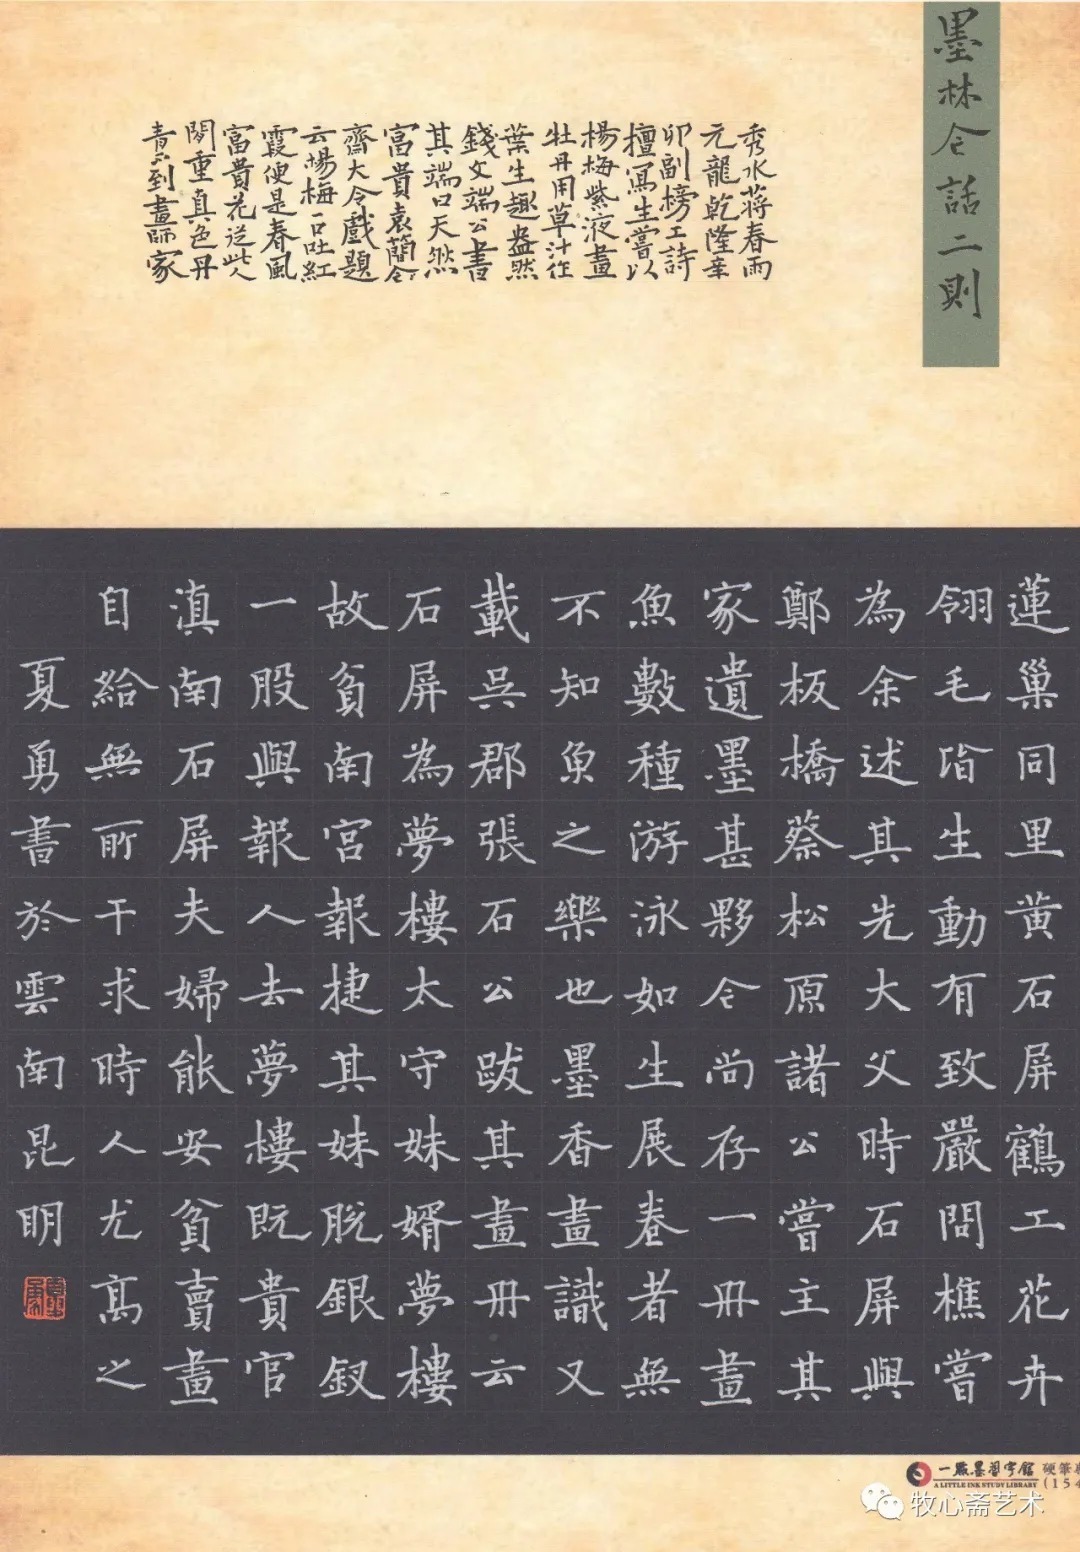 墨林今話二則
秀水蔣春雨
元龍乾隆辛
卯副榜工詩
擅寫生嘗以
楊梅紫液畫
牡丹用草汁作
葉生趣盎然
錢文端公書
其端曰天然
富貴袁蘭
齋大令戲題
云楊梅一口吐紅
霞便是春風
富貴花從此人
間重真色丹
青不到畫師家
蓮巢同里黄石屏鶴工花卉
翎毛皆生動有致嚴問樵嘗
為余述其先大父時石屏與
鄭板橋蔡松原諸公嘗主其
家遺墨甚夥今尚存一冊畫
魚數種游泳如生展卷者無
不知魚之樂也墨香畫識又
載吳郡張石公跋其畫冊云
石屏為夢樓太守妹婿夢樓
故貧南宮報捷其妹脱銀釵
一股與報人去夢樓既貴官
滇南石屏夫婦能安貧賣畫
自給無所干求時人尤高之
夏勇書於雲南昆明
一點墨習字館 硬筆
A LITTLE INK STUDY LIBRARY
(154
牧心斋艺术